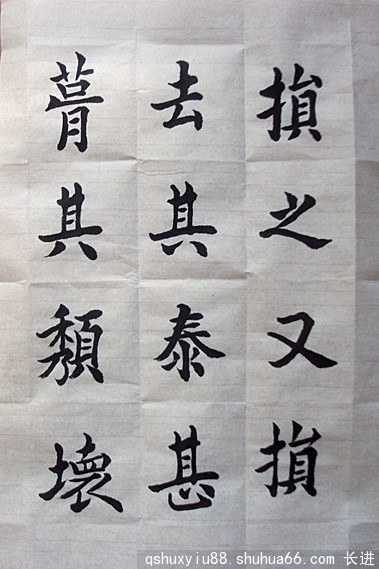 損之又損
去其泰甚
葺其頽壞
qshuxyiu88.shuhua66.com 长进